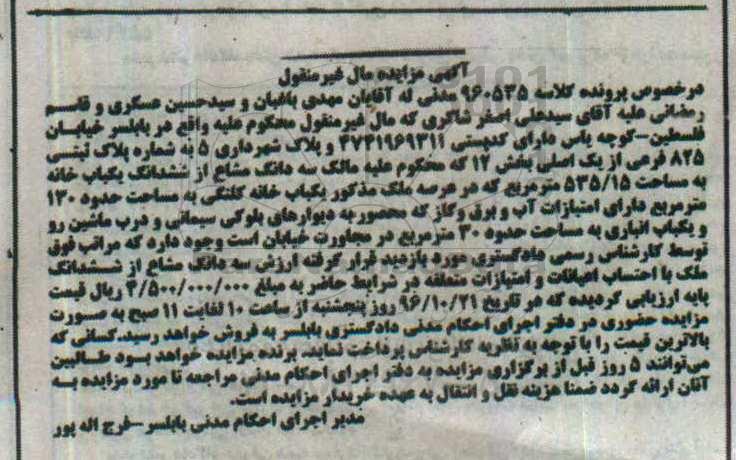 آگهی مزایده مال غیرمنقول
درخصوص پرونده کلاسه ۹۶۰۵۳۵ مدنی له آقایان مهدی باغبان و سیدحسین عسکری و قاسم
رمضانی علیه آقای سیدعلی اصغر شاکری که مال غیرمنقول محکوم علیه واقع در بابلسر خیابان
فلسطین-کوچه یاس دارای کدپستی ۴۷۴۱۹۶۹۳۱۱ و پلاک شهرداری ۵ به شماره پلاک ثبتی
۸۲۵ فرعی از یک اصلی بخش ۱۲ که محکوم علیه مالک سه دانگ مشاع از ششدانگ یکباب خانه
به مساحت ۵۳۵/۱۵ مترمربع که در عرصه ملک مذکور یکباب خانه کلنگی به مساحت حدود ۱۳۰
مترمربع دارای امتیازات آب و برق وگاز که محصور به دیوارهای بلوکی سیمانی و درب ماشین رو
و یکباب انباری به مساحت حدود ۳۰ مترمربع در مجاورت خیابان است وجود دارد که مراتب فوق
توسط کارشناس رسمی دادگستری مورد بازدید قرار گرفته ارزش سه دانگ مشاع از ششدانگ
ملک با احتساب اعیانات و امتیازات متعلقه در شرایط حاضر به مبلغ ۴/۵۰۰/۰۰۰/۰۰۰ ریال قیمت
پایه ارزیابی گردیده که در تاریخ ۹۶/۱۰/۲۱ روز پنجشنبه از ساعت ۱۰ لغایت ۱۱ صبح به صورت
مزایده حضوری در دفتر اجرای احکام مدنی دادگستری بابلسر به فروش خواهد رسید.کسانی که
بالاترین قیمت را با توجه به نظریه کارشناس پرداخت نمایند برنده مزایده خواهد بود طالبین
می‌توانند ۵ روز قبل از برگزاری مزایده به دفتر اجرای احکام مدنی مراجعه تا مورد مزایده به
آنان ارائه گردد ضمنا هزینه نقل و انتقال به عهده خریدار مزایده است.
مدیر اجرای احکام مدنی بابلسر-فرج اله پور